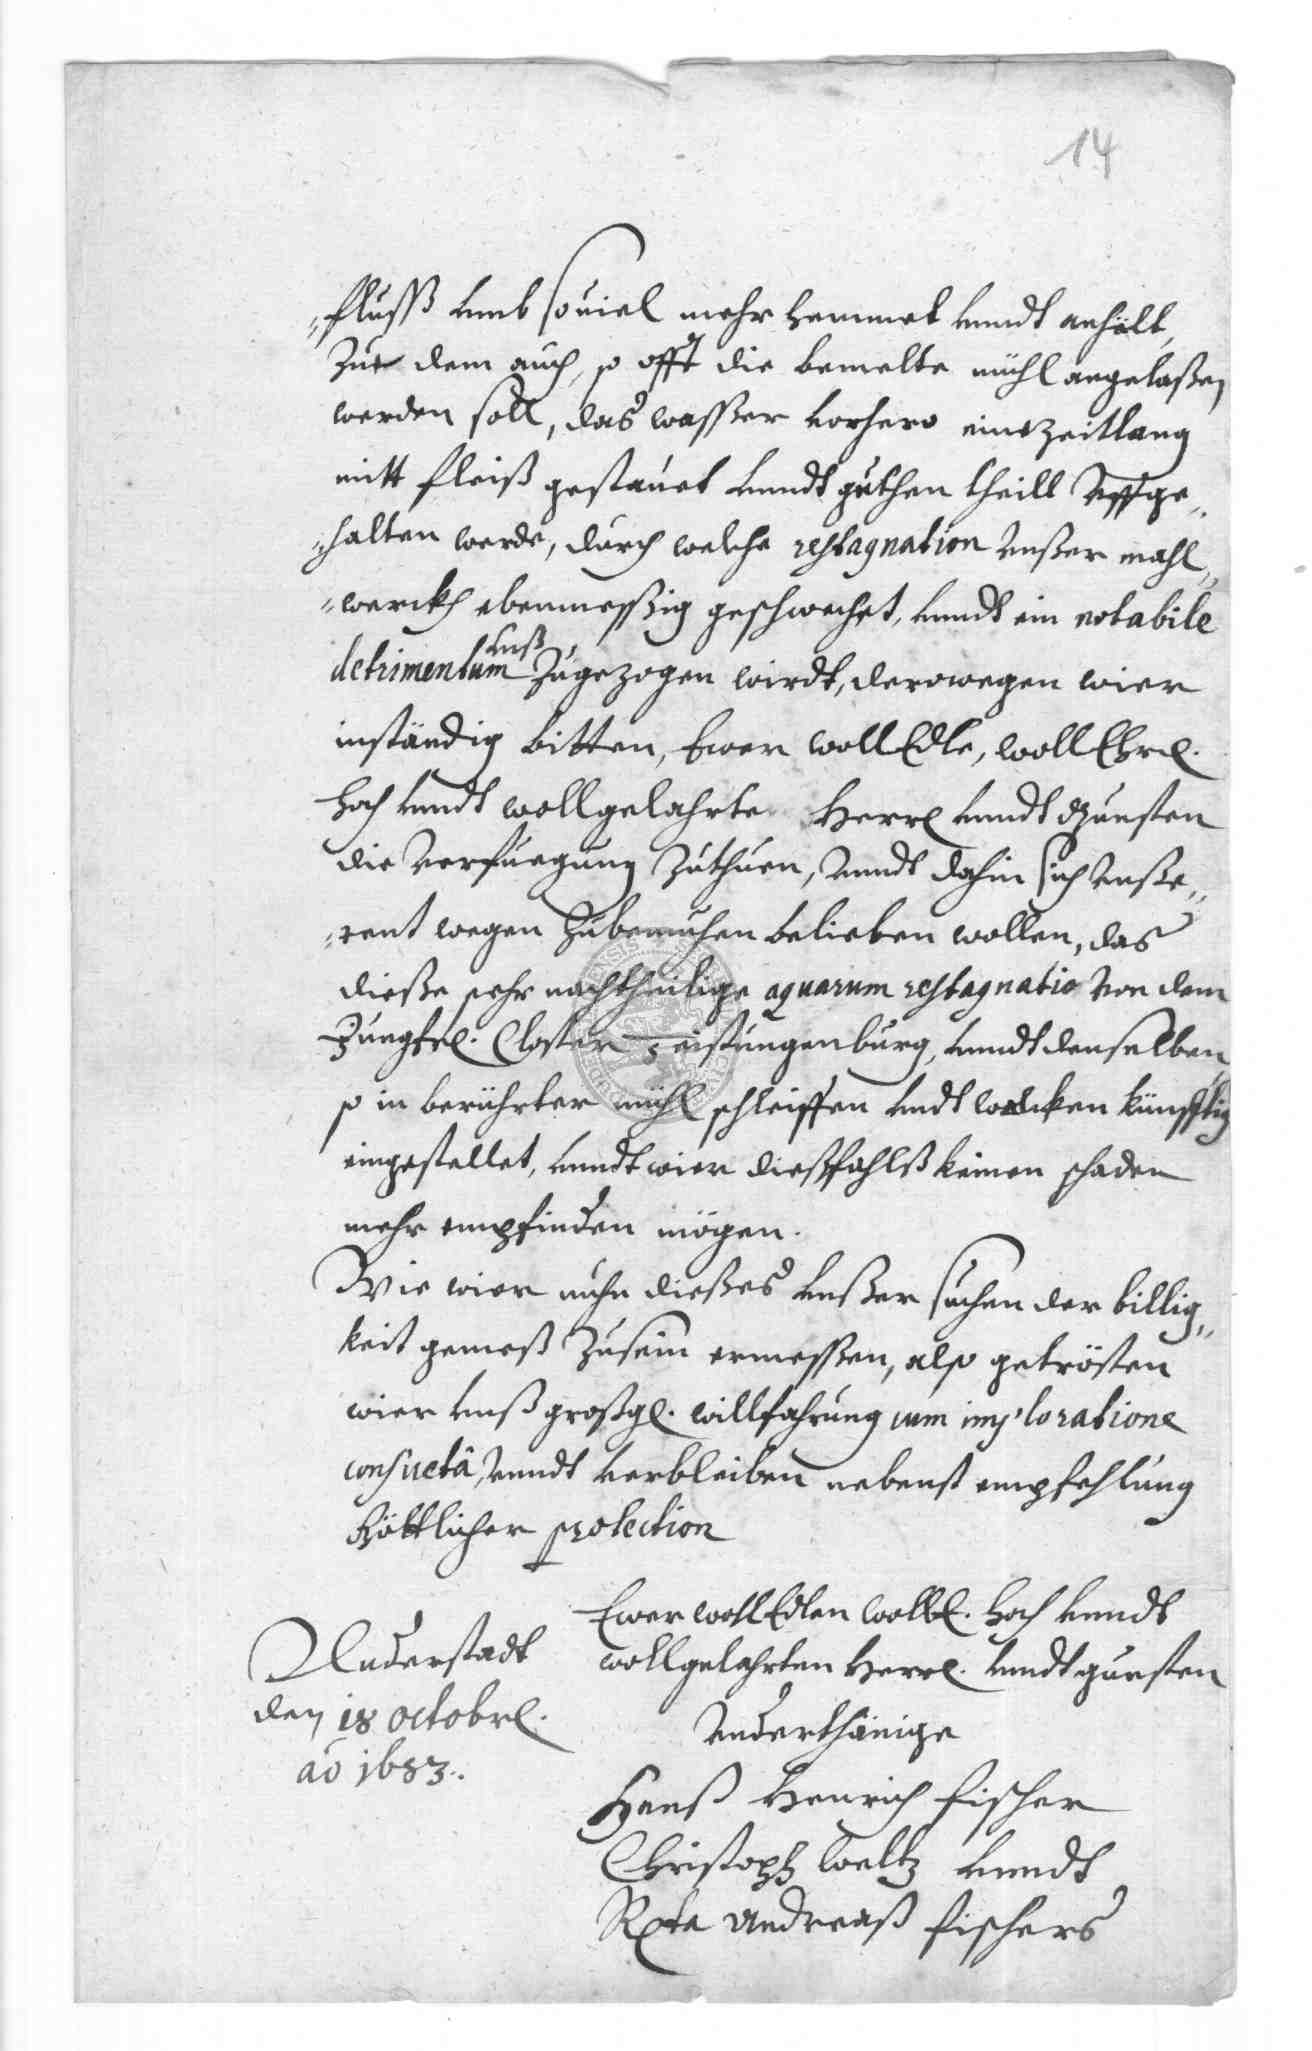 14
„flusß umb souiel mehr hemmet unndt anhält,
Zue dem auch, so offt die bemelte mühl angelaßen
werden soll, das wasßer vorhero eine zeitlang
mitt fleiß gestauet unndt guthen theill uffge„
„halten werde, durch welche restagnation unßer mahl„
„werckh ebenmesßig geschwechet, unndt ein notabile
detrimentum unß zugezogen wirdt, derowegen wier
inständig bitten, Ewer wollEdle, wollEhrl.
hoch unndt wollgelahrte Herrl unndt Gunsten
die verfuegung zuthuen, unndt dahin sich unße„
„rent wegen zubemuhen belieben wollen, das
dieße sehr nachtheilige aquarum restagnatio von dem
Jungfrl. Closter Teistungenburg, unndt denselben
so in berührter mühl schleiffen undt walcken künfftig
eingestellet, unndt wier dießfahlß keinen schaden
mehr empfinden mögen.
Wie wier nuhn dießes unßer suchen der billig„
keit gemeß zusein ermesßen, also getrösten
wier unß großgl. willfahrung cum imploratione
consuetâ, unndt verbleiben nebenst empfehlung
Göttlicher protection
Ewer wollEdlen wollE. hoch unndt
wollgelahrten Herrl. unndt gunsten
Underthänige
Hanß Henrich fischer
Christoph Weltz unndt
Andreaß fischers
Duderstadt
den 18 octobrl.
aõ 1683.